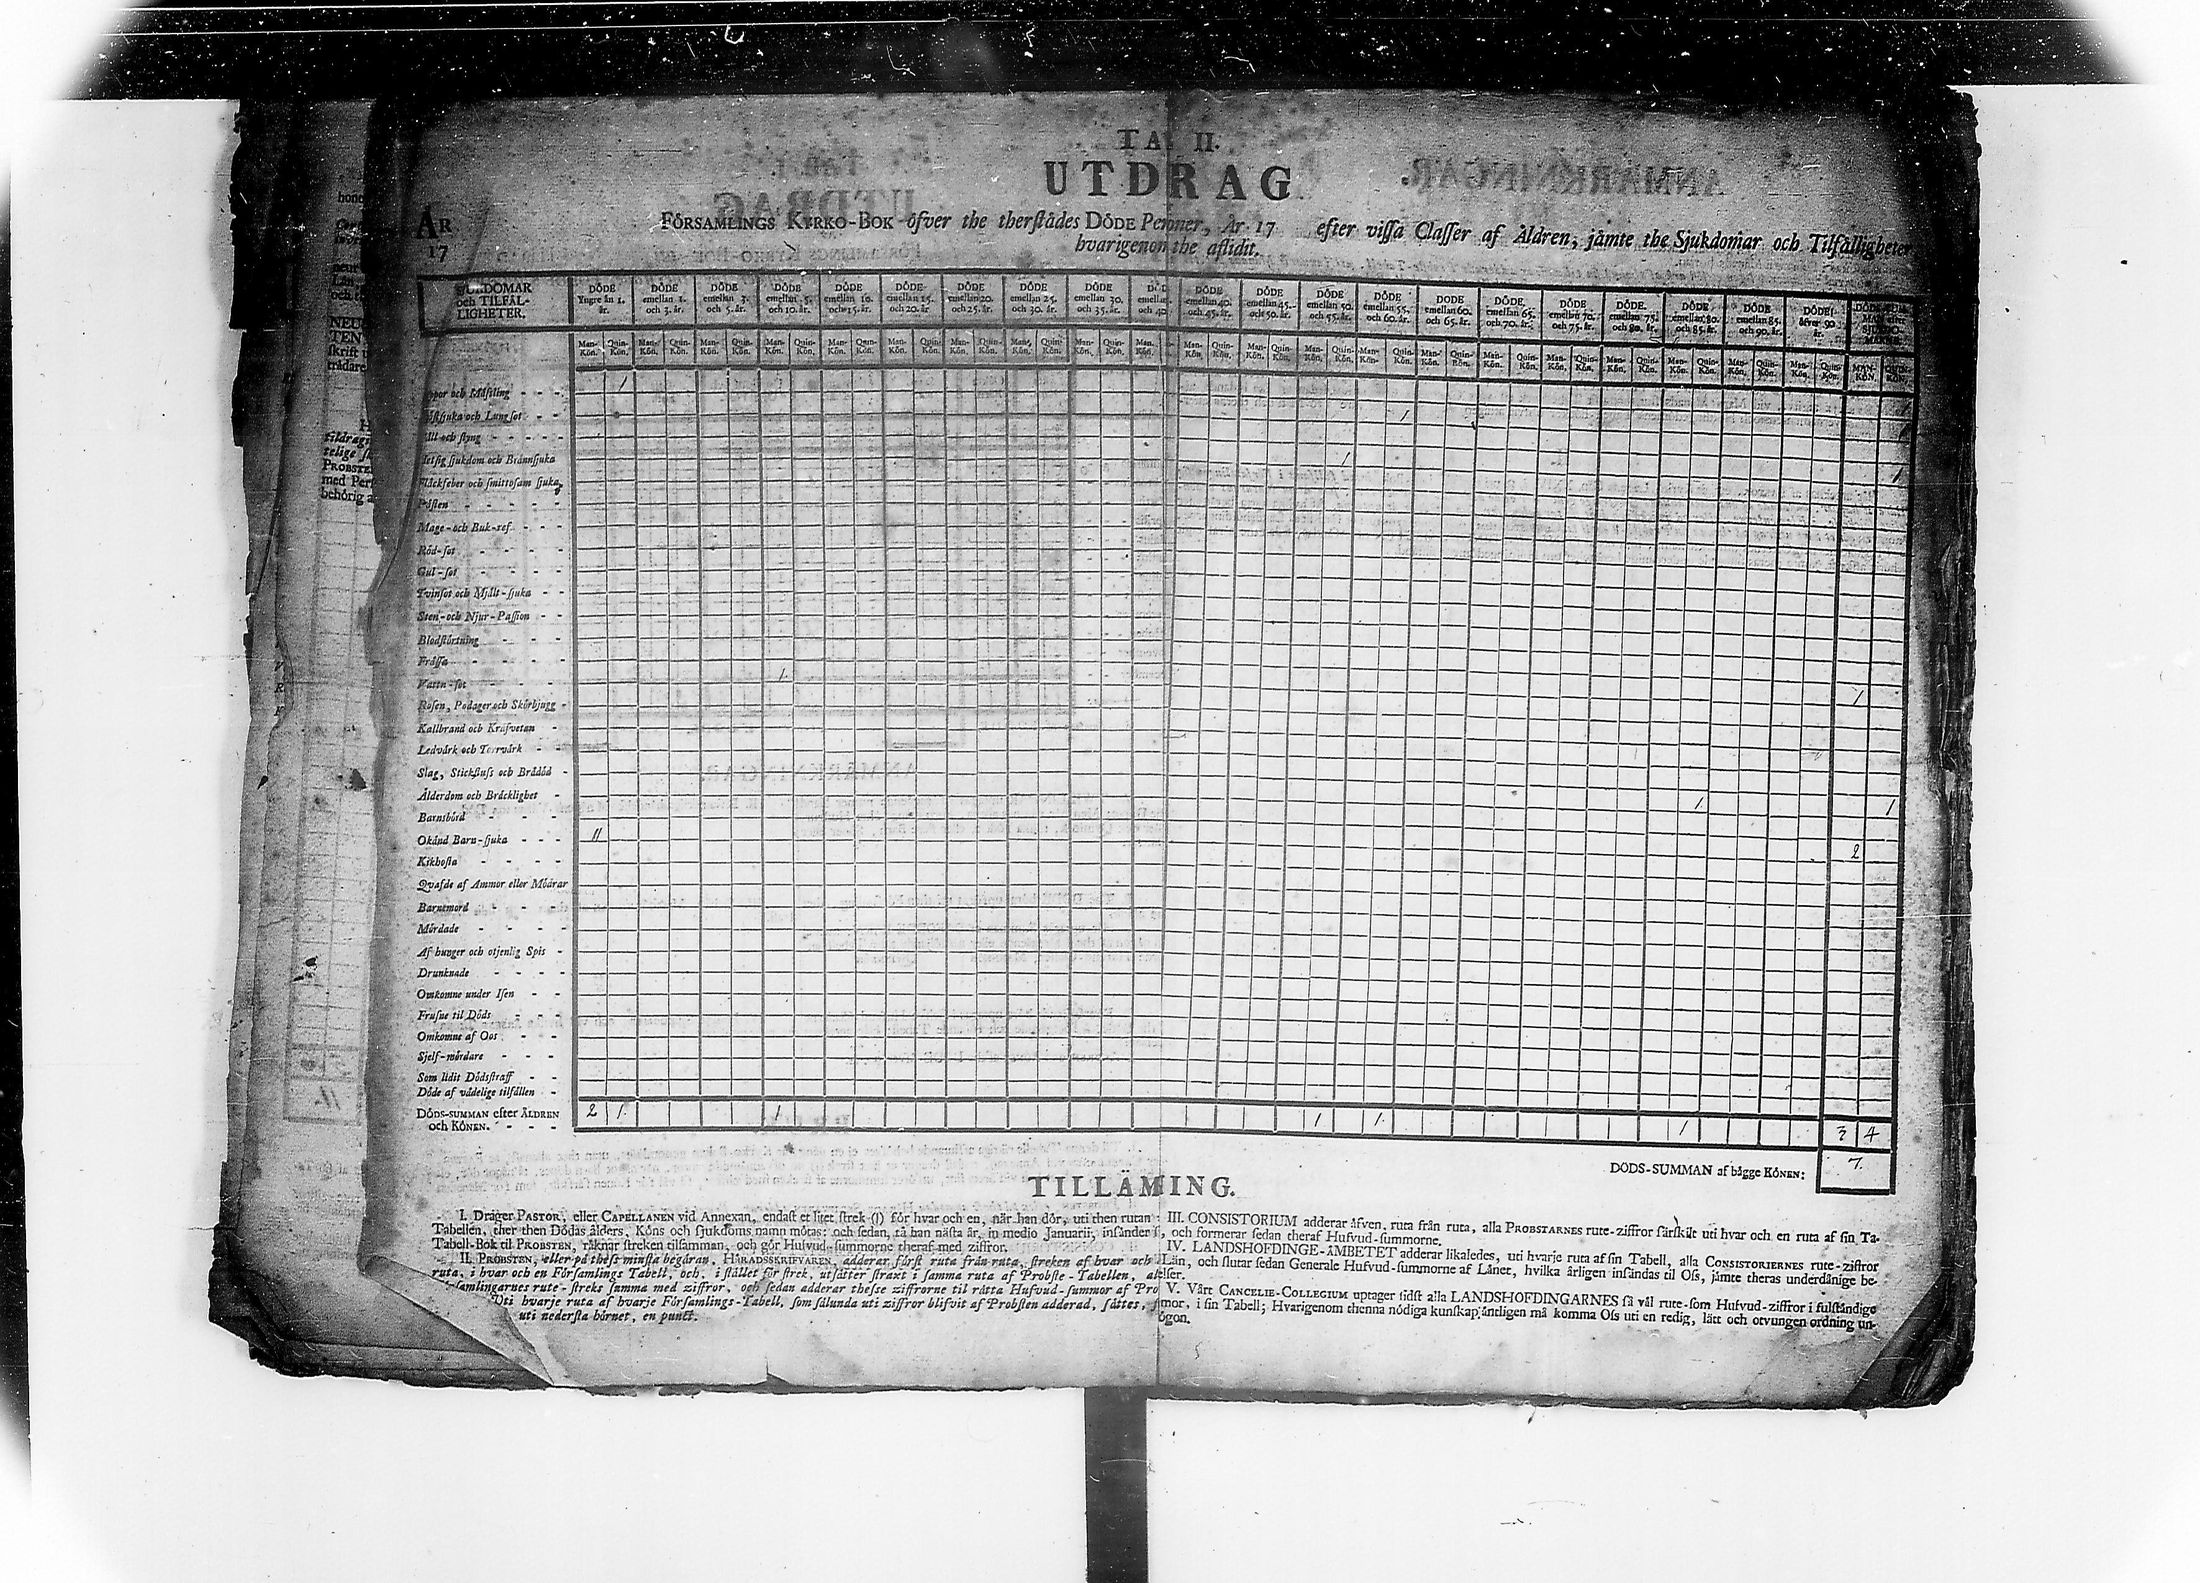 TA II.
UTDRAG
ÅR
17
FÖRSAMLINGS KYRKO-BOK öfver the therstådes DÖDE Personer, År 17 efter vissa Classer af Åldren, jämte the Sjukdomar och Tilfälligheter
hvarigenom the aflidit.
SJUKDOMAR och TILFÄLLIGHETER.
DÖDE Yngre än 1. år.
DÖDE emellan 1. och 3. år.
DÖDE emellan 3. och 5. år.
DÖDE emellan 5. och 10. år.
DÖDE emellan 10. och 15. år.
DÖDE emellan 15. och 20. år.
DÖDE emellan 20. och 25. år.
DÖDE emellan 25. och 30. år.
DÖDE emellan 30. och 35. år.
DÖD emellan och 40
DÖDE emellan 40. och 45. år.
DÖDE emellan 45. och 50. år.
DÖDE emellan 50. och 55. år.
DÖDE emellan 55. och 60. år.
DÖDE emellan 60. och 65. år.
DÖDE emellan 65. och 70. år.
DÖDE emellan 70. och 75. år.
DÖDE emellan 75. och 80. år.
DÖDE emellan 80. och 85. år.
DÖDE emellan 85. och 90. år.
DÖDE öfver 90 år.
Man-Kön. Quin-Kön.
ppor och Mäsling 1
och Lungsot 1
ll och styng
Hetsig sjukdom och Brännsjuka 1 1
Fläckfeber och smittosam sjuka
Påsten
Mage- och Buk-ref
Röd-sot
Gul-sot
Tvinsot och Mjält-sjuka
Sten- och Njur-Passion
Blodstörtning
Frässa
Vattn-sot 1. 1
Rosen, Podager och Skörbjugg
Kallbrand och Kräfvetan
Ledvärk och Torrvärk
Slag, Stickfluss och Brådöd
Ålderdom och Bräcklighet 1 1
Barnsbörd
Okänd Barn-sjuka 11 2
Kikhosta
Qvafde af Ammor eller Mödrar
Barnemord
Mördade
Af hunger och otjenlig Spis
Drunknade
Omkomne under Isen
Frusne til Döds
Omkomne af Oos
Sjelf-mördare
Som lidit Dödsstraff
Döde af vådelige tilfällen
DÖDS-SUMMAN efter ÅLDREN och KÖNEN. 2 1. 1 1 1. 1 3 4
DÖDS-SUMMAN af bägge KÖNEN: 7.
TILLÄMING.
I. Dräger PASTOR, eller CAPELLANEN vid Annexan, endast et litet strek (1) för hvar och en, när han dör, uti then rutan
Tabellen, ther then Dödas ålders, Köns och sjukdoms namn mötas: och sedan, tå han nästa år, in medio Januarii, insänder
Tabell-Bok til PROBSTEN, räknar streken tilsamman, och gör Hufvud-summorne theraf med ziffror.
II. PROBSTEN, eller på thess minsta begäran, HÄRADSSKRIFVAREN, adderar först ruta från ruta, streken af hvar och
ruta, i hvar och en Församlings Tabell, och, i stället för strek, utsätter straxt i samma ruta af Probste-Tabellen, al
samlingarnes rute-streks samma med ziffror, och sedan adderar thesse ziffrorne til rätta Hufvud-summor af Pro
Uti hvarje ruta af hvarje Församlings-Tabell, som sålunda uti ziffror blifvit af Probsten adderad, sättes,
uti nedersta hörnet, en punct.
III. CONSISTORIUM adderar äfven, ruta från ruta, alla PROBSTARNES rute-ziffror särskilt uti hvar och en ruta af sin Ta-
och formerar sedan theraf Hufvud-summorne.
IV. LANDSHOFDINGE-ÄMBETET adderar likaledes, uti hvarje ruta af sin Tabell, alla CONSISTORIERNES rute-ziffror
Län, och slutar sedan Generale Hufvud-summorne af Länet, hvilka årligen insändas til Oss, jämte theras underdånige be-
elser.
V. Vårt CANCELIE-COLLEGIUM uptager sidst alla LANDSHOFDINGARNES så väl rute-som Hufvud-ziffror i fulständige
mor, i sin Tabell; Hvarigenom thenna nödiga kunskap äntligen må komma Oss uti en redig, lätt och otvungen ordning un-
ögon.